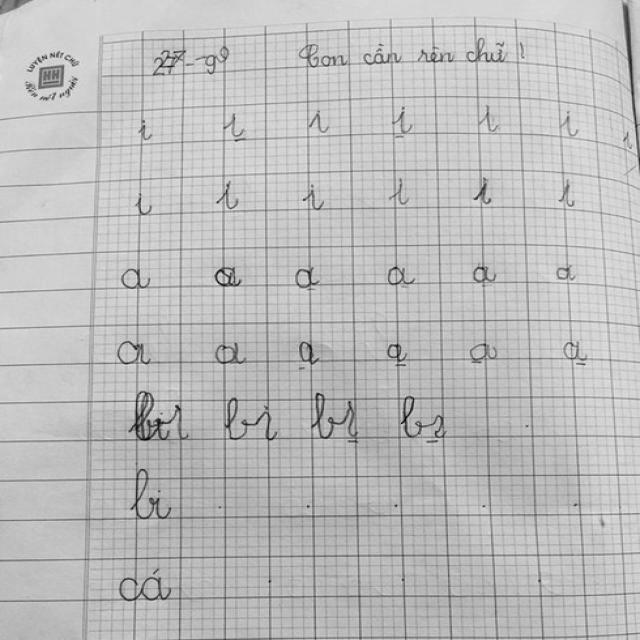 LUYỆN NÉT CHỮ
HH
Rèn nét người
27-9 Con cần rèn chữ!
i i i i i i i
i i i i i i
a a a a a a
a a a a a a
bi bi bi bi
bi
cá